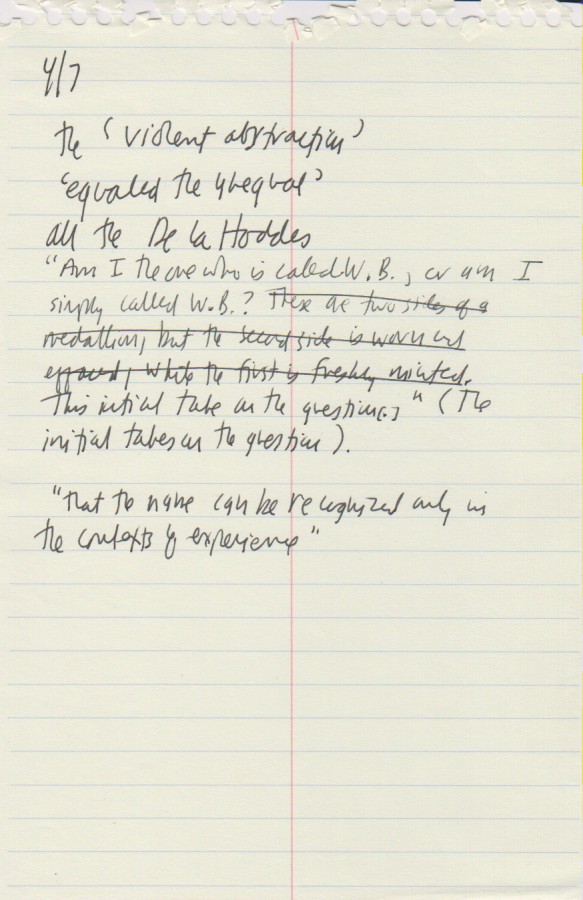 4/7
the 'violent abstraction'
'equated the unequal'
all the De la Hoddes
"Am I the one who is called W.B., or am I
simply called W.B.? These are two sides of a
medallion, but the second side is worn and
effaced, while the first is freshly minted.
This initial take on the question[.]" (The
initial takes on the question).
"that the name can be recognized only in
the contexts of experience"